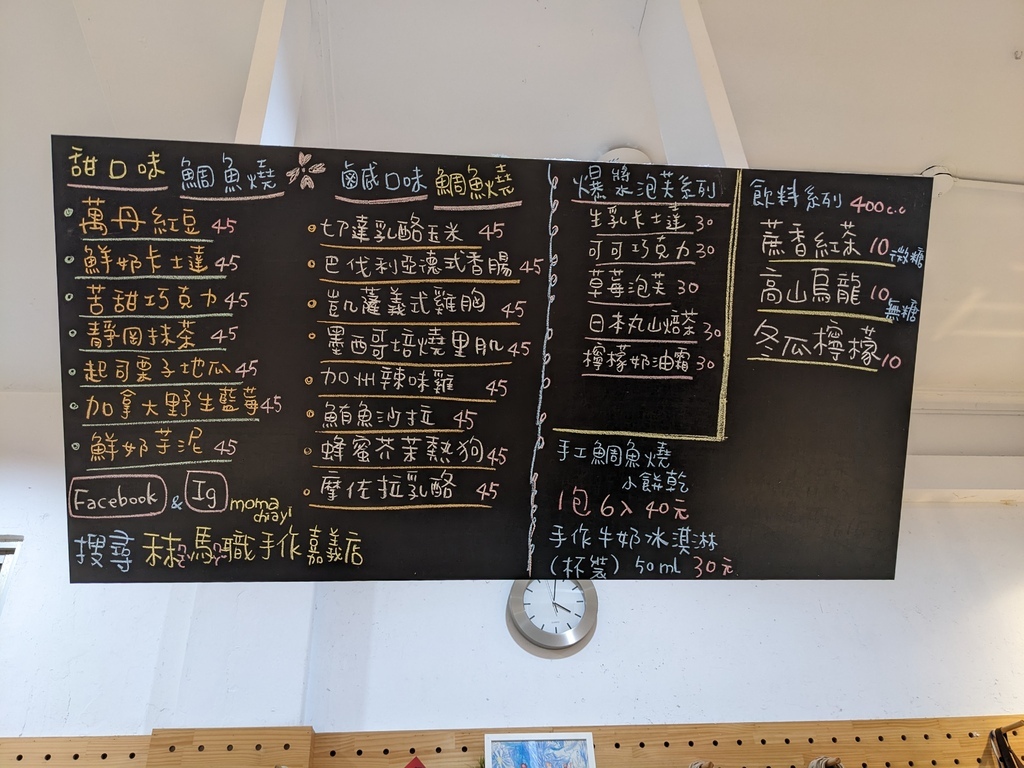 甜口味 鯛魚燒
萬丹紅豆 45
鮮奶卡士達 45
苦甜巧克力 45
靜岡抹茶 45
起司栗子地瓜 45
加拿大野生藍莓 45
鮮奶芋泥 45
Facebook & Ig moma chiayi
搜尋 秣馬職手作 嘉義店
鹹口味 鯛魚燒
切達乳酪玉米 45
巴伐利亞德式香腸 45
凱薩義式雞胸 45
墨西哥培燒里肌 45
加州辣味雞 45
鮪魚沙拉 45
蜂蜜芥茉熱狗 45
摩佐拉乳酪 45
爆漿泡芙系列
生乳卡士達 30
可可巧克力 30
草莓泡芙 30
日本丸山焙茶 30
檸檬奶油霜 30
手工鯛魚燒
小餅乾
1包6入 40元
手作牛奶冰淇淋
(杯裝) 50ml 30元
飲料系列 400c.c
蔗香紅茶 10 微糖
高山烏龍 10 無糖
冬瓜檸檬 10